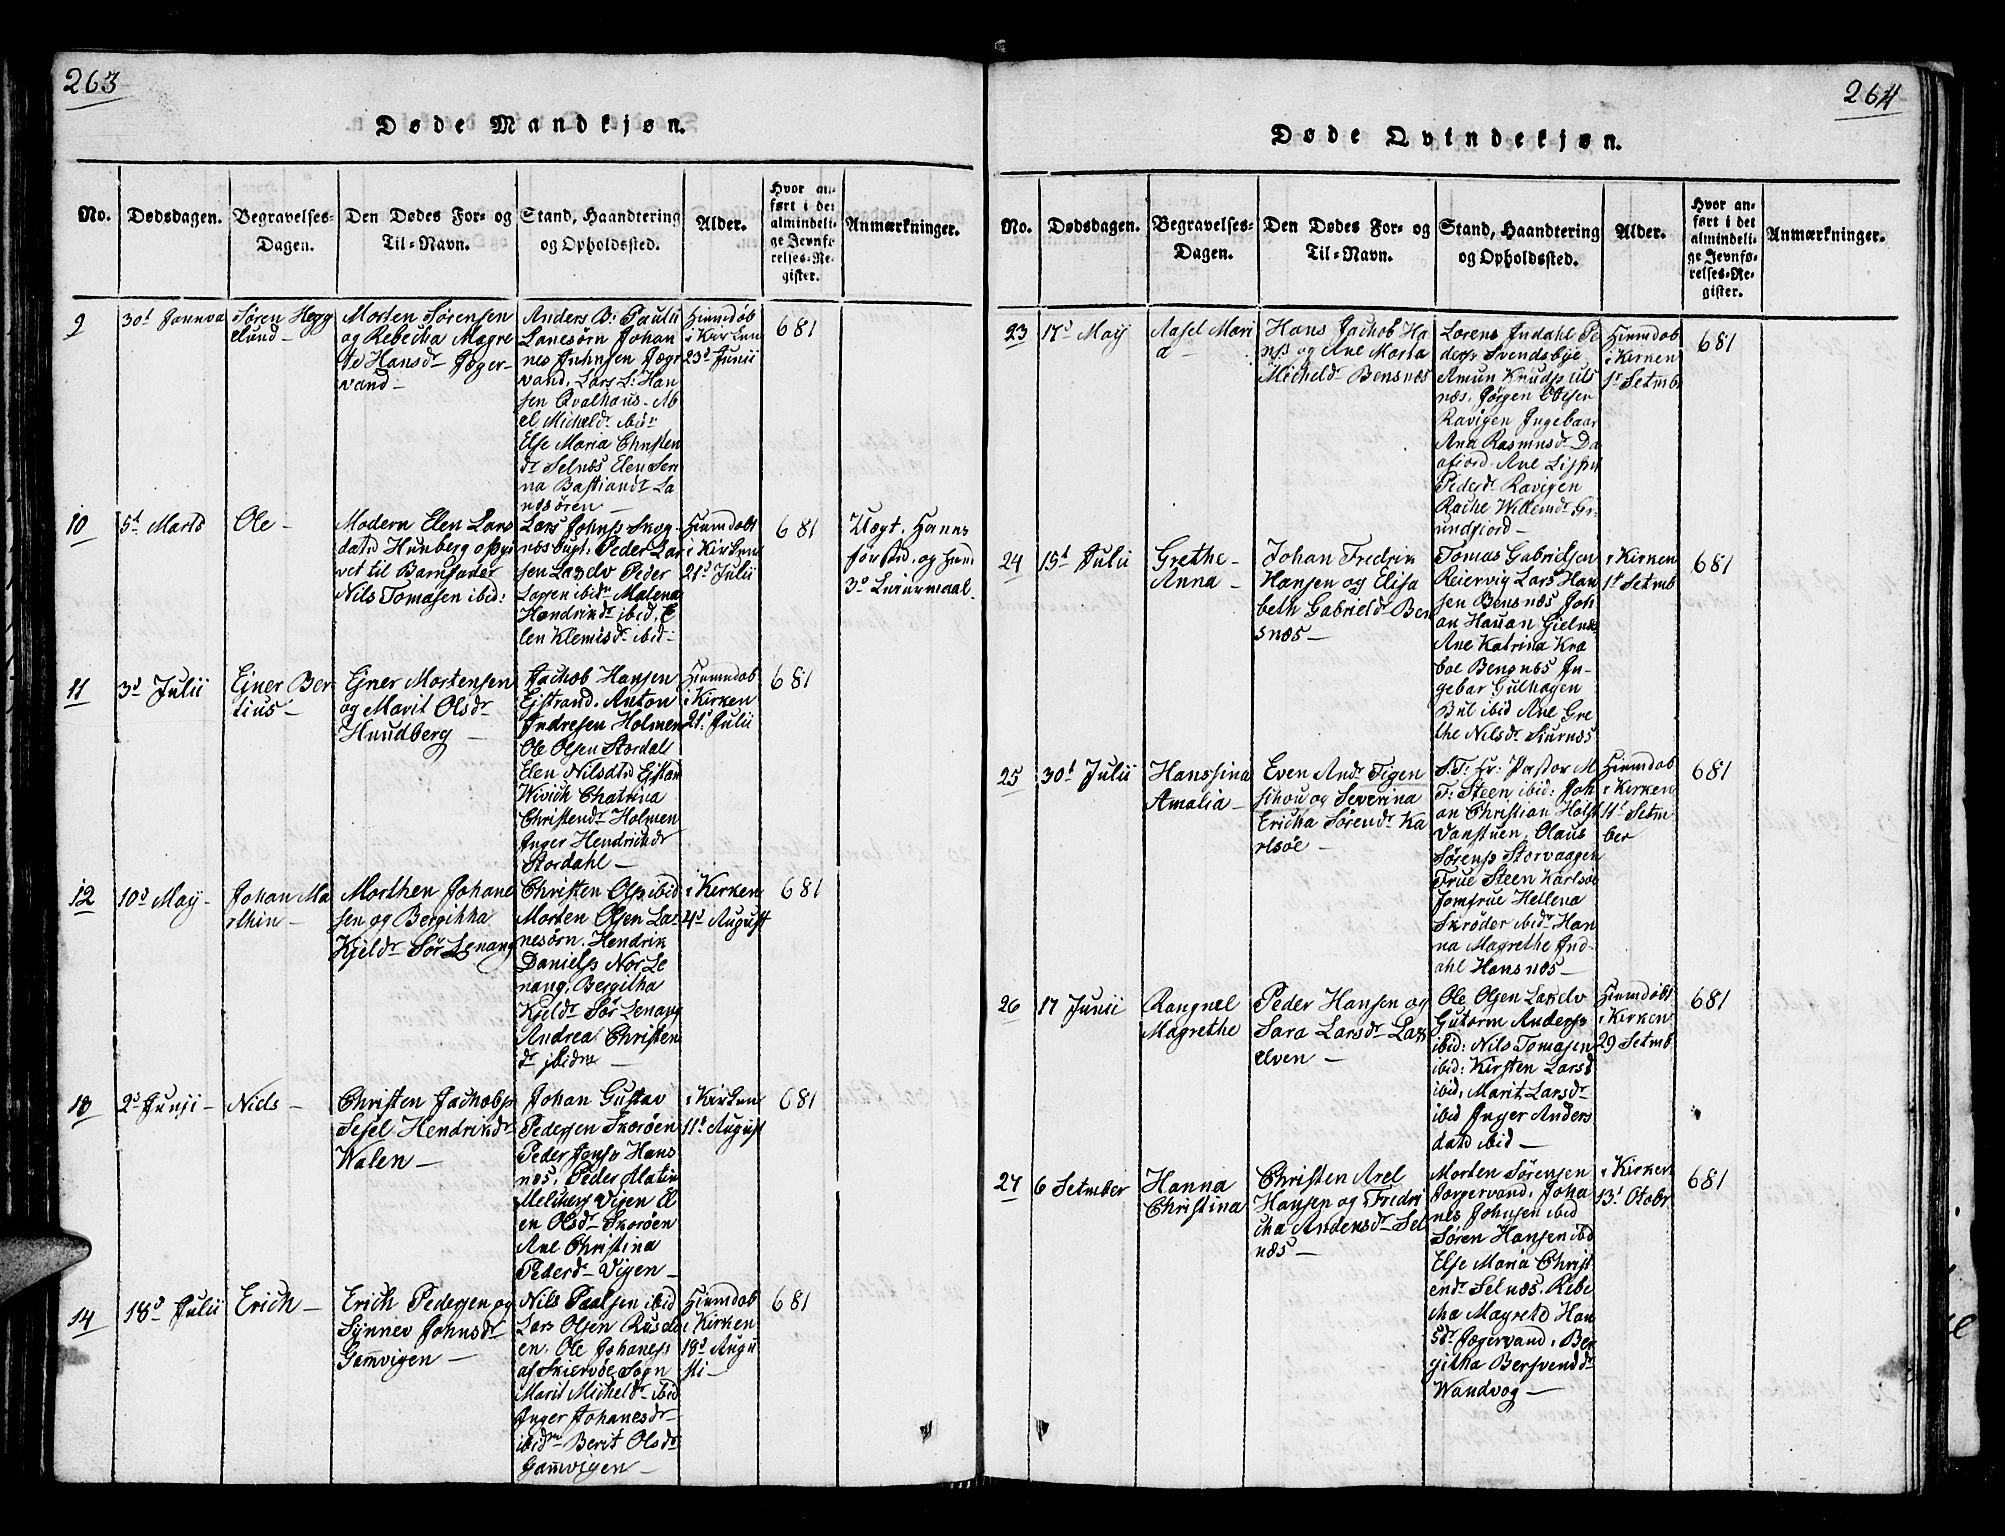 263
Døde Mandkjøn.
No.
Dødsdagen.
Begravelses-
Dagen.
Den Dødes For- og
Til-Navn.
Stand, Haandtering
og Opholdssted.
Alder.
Hvor an-
ført i det
almindeli-
ge Jevnfø-
relses-Re-
gister.
Anmærkninger.
9
30d Jannva
Søren Hegg
elund -
Morten Sørensen
og Rebecka Magre
te Hansdr Jæger-
vand -
Anders B: Pauli
Lanesørn Johan
nes Johnsen Jægr
vand, Lars L: Han
sen Qvalhaus - Ab
el Micheldr ibdr
Else Maria Christen
dr Selnæs Elen Ser
na Bastiandr La
nesøren -
Hiemdøb
i Kirken
23d Junii
681
10
5d Marts
Ole -
Modern Elen Lars
datr Hunberg opgi
vet til Barnfader
Nils Tomasen ibid:
Lars Johnss Skog-
næs Peder Lar
sen Lazelv Peder
Larsen ibidm Malena
Hendrikdr ibid. E
len Klemisdr ibid:
Hiemdøbt
i Kirken
21d Julii
681
Uægt, Hanns
første, og hendes
3d Leiermaal.
11
3d Julii
Ejner Ber
tius -
Ejner Mortensen
og Marit Olsdr
Hundberg -
Jachob Hansen
Ejstrand. Anton
Andresen Holmen
Ole Olsen Stordal
Elen Nilsdtr Ejstan
Wivich Chatrina
Christendr Holmen
Inger Hendrikdr
Stordahl -
Hiemdøb
i Kirken
21d Julii
681
12
10d May -
Johan Ma
rthin -
Morthen Johane
sen og Bergitha
Kjeldr Sør Lenang
Christen Olss ibid
Morten Olsen La-
nesørn. Hendrik
Danielss Nor Le
nang, Bergitha
Kjeldr Sør Lenang
Andrea Christen
dr ibidm -
i Kirken
4d August
681
13
2d Junji -
Niels -
Christen Jachobss
Sesel Hendrikdr
Walen -
Johan Gustav
Pedersen Skorøen
Peder Jenss Hans
næs. Peder Matin
Melberg Vigen El
en Olsdr Skorøen
Ane Christina
Pedersdr Vigen -
i Kirken
11d August
681
14
18d Julii
Erich -
Erich Pedersen og
Synnev Johnsdr
Gamvigen -
Nils Paalsen ibid
Lars Olsen Russelv
en. Ole Johaness
af Skiervøe Sogn
Marit Micheldr ibid
Inger Johanesdr
ibidm Berit Olsdr
Gamvigen -
Hiemdøb
i Kirken
18d Augu
sti -
681
264
Døde Qvindekjøn.
No.
Dødsdagen.
Begravelses-
Dagen.
Den Dødes For- og
Til-Navn.
Stand, Haandtering
og Opholdssted.
Alder.
Hvor an-
ført i det
almindeli-
ge Jevnfø-
relses-Re-
gister.
Anmærkninger.
23
17d May
Aasel Mari
a -
Hans Jachob Ha
nss og Ane Marta
Micheldr Bensnæs
Lorens Indahl Pe
derss Svendsbye
Amun Knudss Uls
næs. Jørgen Olssen
Ravigen Ingebaar
Ana Rasmusdr Da
afjord. Ane Lisbet
Pedersdr Ravigen
Rache Willemdr Gr
undfjord -
Hiemdøb
i Kirken
1d Setmb
681
24
15d Julii
Grethe -
Anna -
Johan Fredrik
Hansen og Elisa
beth Gabrieldr Ben
snæs -
Tomas Gabrielsen
Reiervig Lars Han
sen Bensnæs Joh
an Hauan Gielnæs
Ane Katrina Kra
boe Bengnæs In-
gebar Gulhagen
Bul ibid Ane Gre
the Nilsdr Skarnæs
i Kirken
1d Setmb
681
25
30d Julii
Hanssina
Amalia -
Even Andr Tigen
sihou og Severina
Ericha Sørendr Ka
rlsøe -
S. T: Hr: Pastor M
T: Steen ibid: Joh
an Christian Holst
Vanstuen, Olaus
Sørenss Storvaagen
Frue Steen Karlsøe
Jomfrue Hellena
Skrøder ibidr Han
na Magrethe Ind-
ahl Hansnæs -
Hiemdøb
i Kirken
11d Setem
ber
681
26
17 Junii
Rangnel
Magrethe
Peder Hansen og
Sara Larsdr Laxs
elven -
Ole Olsen Laxselv
Gutorm Anderss
ibid: Nils Tomasen
ibid: Kirsten Larsd
ibid, Marit Larsdr
ibid Inger Anders
datr ibid -
Hiemdøbt
i Kirken
29 Setmb
681
27
6 Setmber
Hanna
Christina
Christen Arel
Hansen og Fredri
cha Andersdr Sel
næs -
Morten Sørensen
Jærgervand. Joha
nes Johnsen ibid
Søren Hansen ibd
Else Maria Christ
endr Selnæs. Rebe
cha Magrete Han
sdr Jægervand. Ber
githa Bersvenddr
Wandvog -
i Kirken
13d Otobr
681